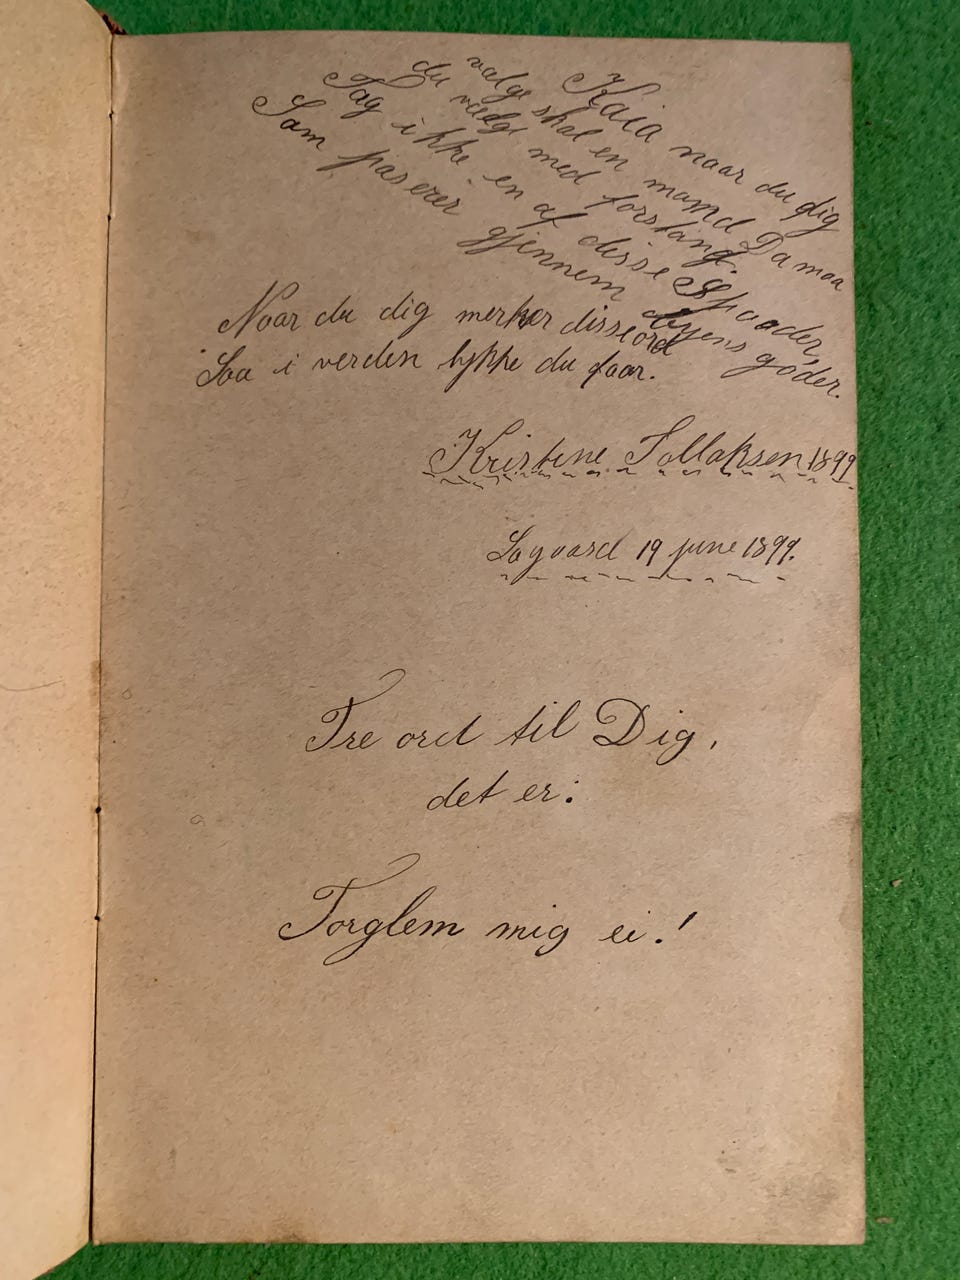 Kaia naar du dig
valge skal en mamd Da maa
du vælge med forstand.
Tag ikke en af disse Spaader,
Som paserer gjennem byens goder.
Naar du dig merker disse ord
Saa i verden lykke du faar.
Kristine Tollaksen 1899
19 june 1899.
Tre ord til Dig,
det er:
Forglem mig ei!